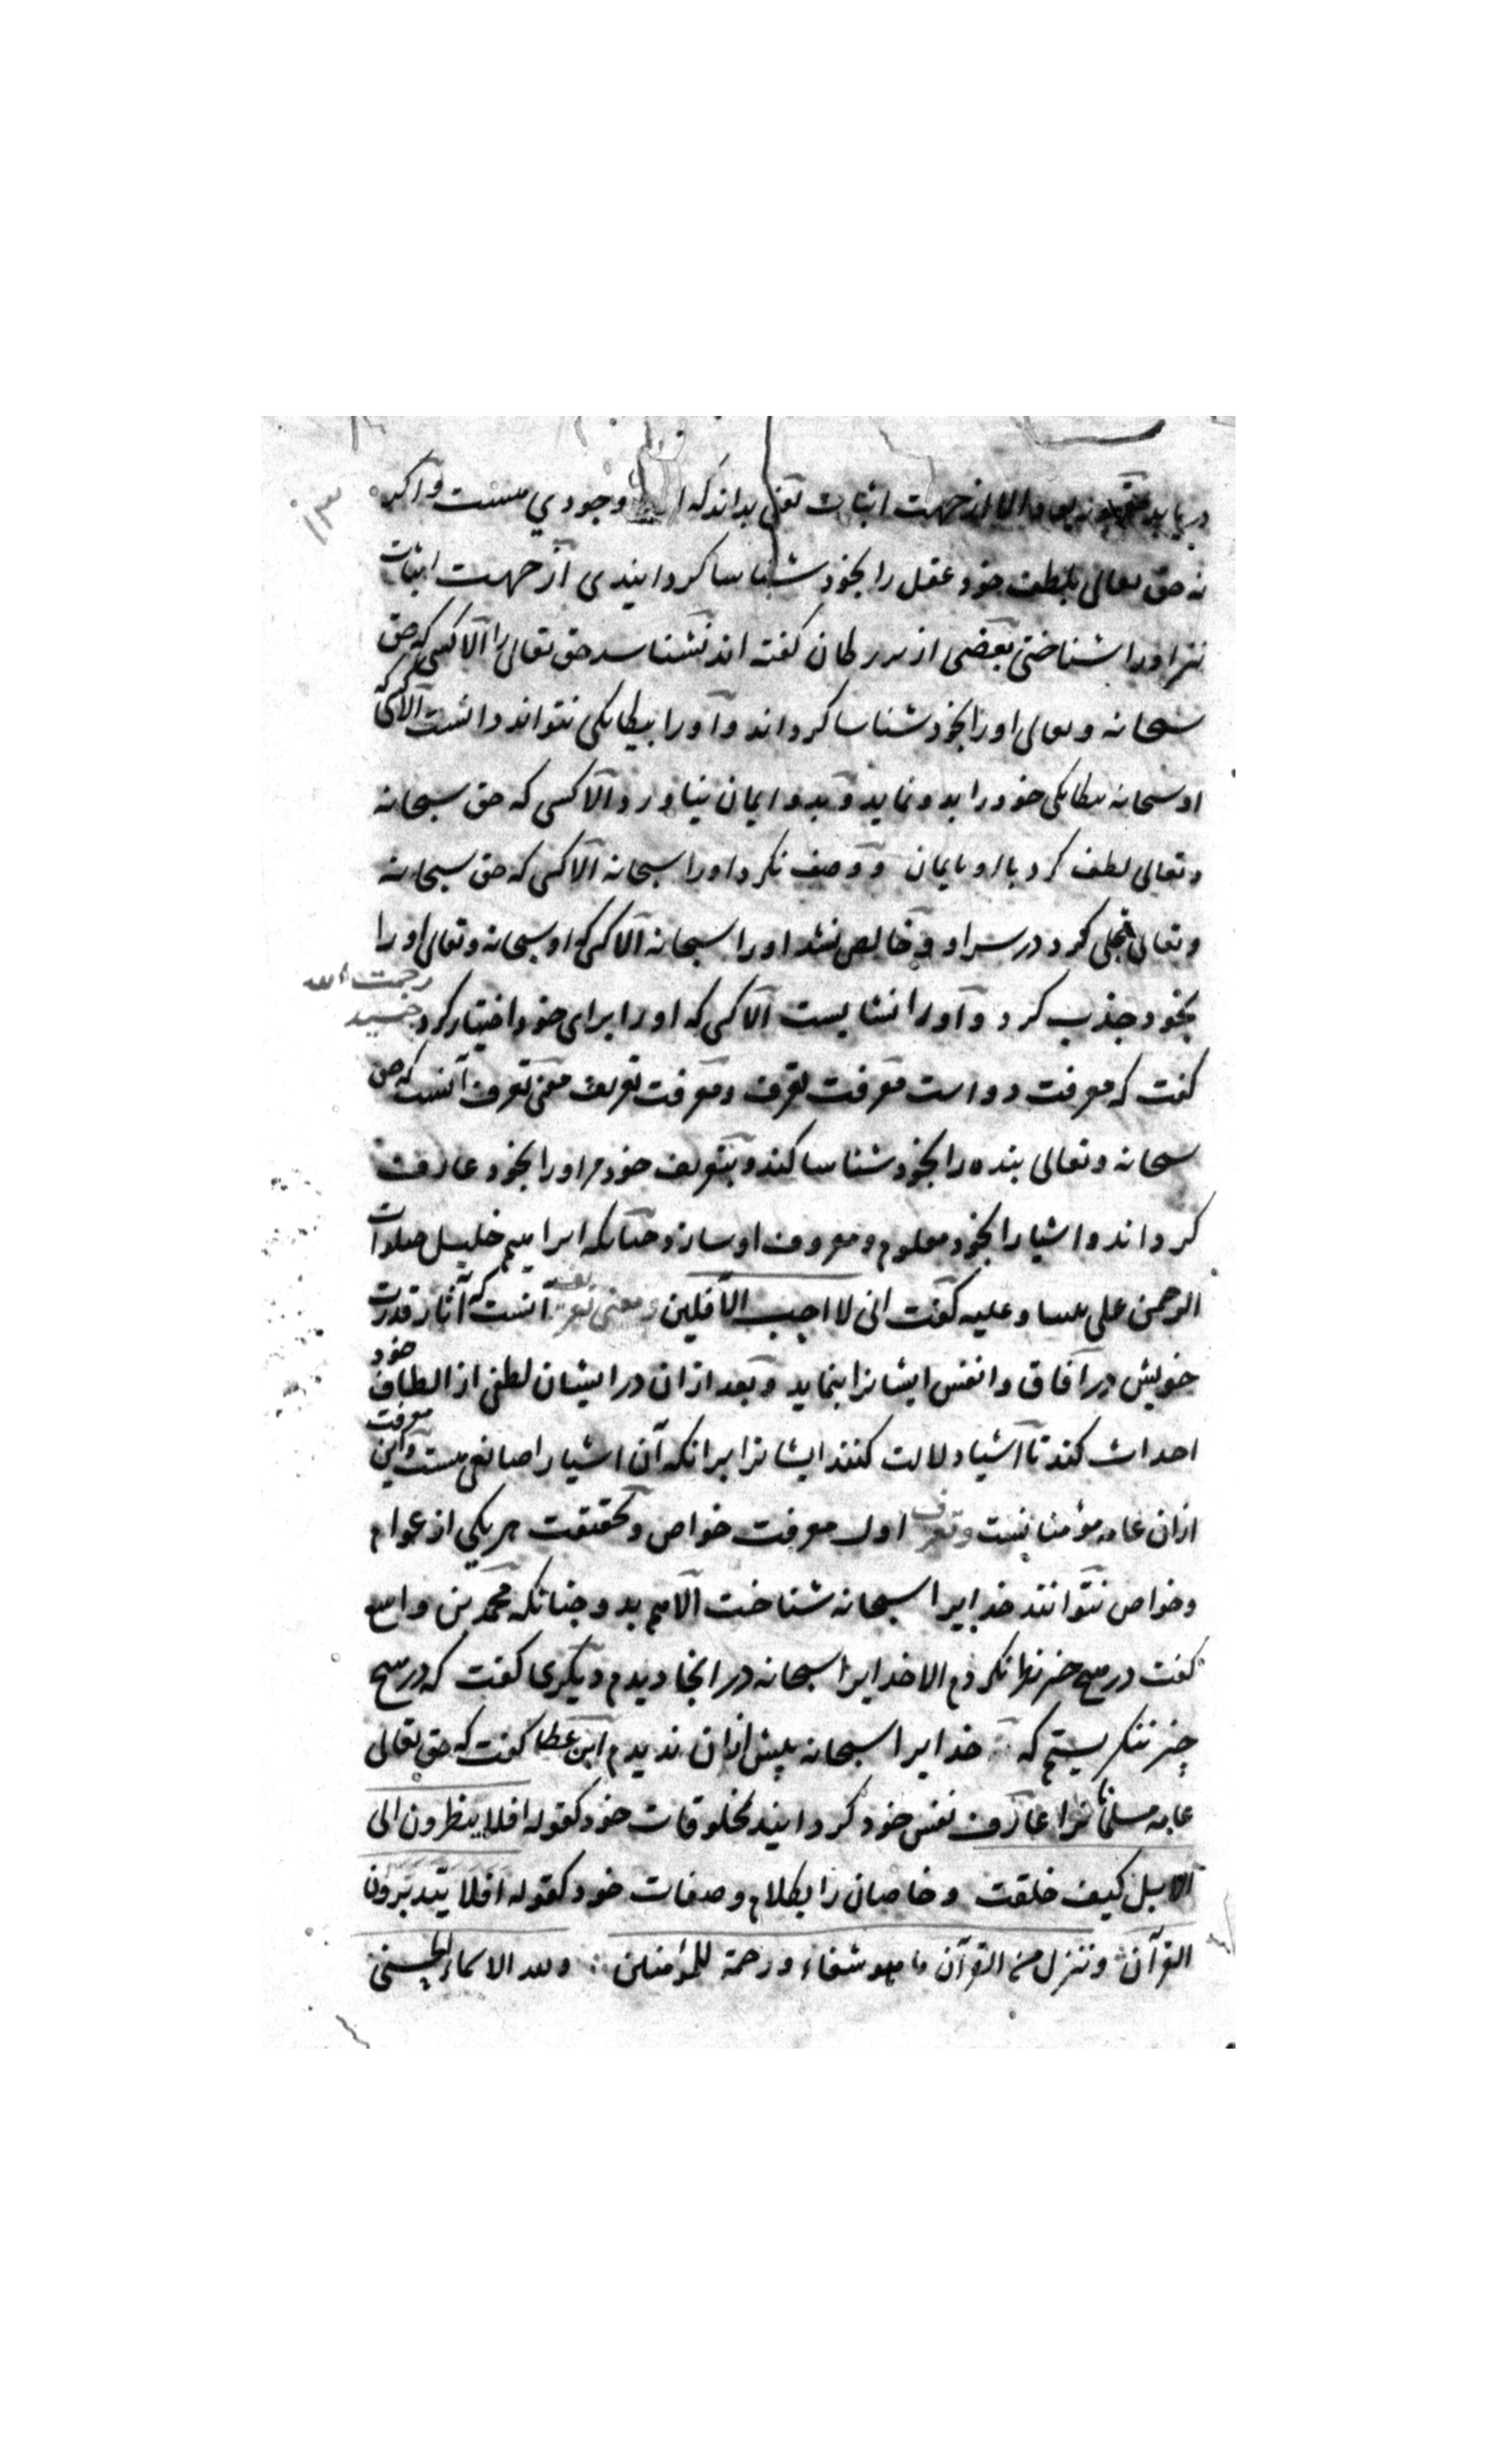 ۱۳
الا از جهت اثبات یعنی بداند که وجودی هست و اگر
نه حق تعالی بلطف خود عقل را بخود شناسا کردانیدی از جهت اثبات
نیز او را نشناختی بعضی از بزرکان کفته اند نشناسد حق تعالی را الا کسی که حق
سبحانه وتعالی او را بخود شناسا کرداند و او را بیکانکی نتواند دانست الا آنکه
او سبحانه بیکانکی خود را بدو نماید و بدو ایمان نیاورد الا کسی که حق سبحانه
وتعالی لطف کرد با او بایمان و وصف نکرد او را سبحانه الا کسی که حق سبحانه
وتعالی تجلی کرد در سر او و خالص نشد او را سبحانه الا کسی که او سبحانه وتعالی او را
بخود جذب کرد و او را نشایست الا کسی که او را برای خود اختیار کرد جنید رحمت الله
کفت که معرفت دو است معرفت تعرف و معرفت تعریف معنی تعرف آنست که حق
سبحانه وتعالی بنده را بخود شناسا کند و بتعریف خود مر او را بخود عارف
کرداند و اشیا را بخود معلوم و معروف او سازد چنانکه ابراهیم خلیل صلوات
الرحمن علی نبینا وعلیه کفت انی لا احب الآفلین و معنی تعریف آنست که آثار قدرت
خویش در آفاق و انفس ایشانرا بنماید و بعد از ان در ایشان لطفی از الطاف خود
احداث کند تا اشیا دلالت کنند ایشانرا برانکه آن اشیا را صانعی هست و این معرفت
ازان عامه مؤمنانست و تعرف اول معرفت خواص و بحقیقت هر یکی از عوام
وخواص نتوانند خدایرا سبحانه شناخت الا هم بدو چنانکه محمد بن واسع
کفت در هیچ چیز نظر نکردم الا خدایرا سبحانه در انجا دیدم دیکری کفت که در هیچ
چیز ننکریستم که خدایرا سبحانه پیش ازان ندیدم ابن عطا کفت که حق تعالی
عامه مسلمانانرا عارف نفس خود کردانید بمخلوقات خود کقوله افلا ینظرون الی
الابل کیف خلقت و خاصان را بکلام و صفات خود کقوله افلا یتدبرون
القرآن وننزل من القرآن ما هو شفاء ورحمة للمؤمنین ولله الاسماء الحسنی